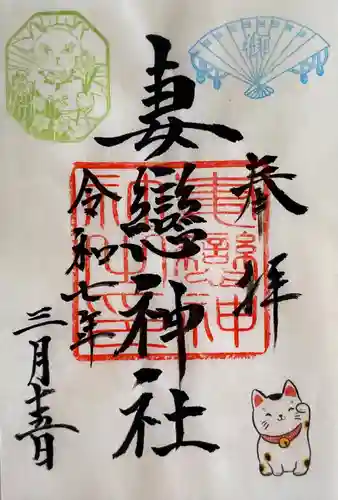 奉拝
妻戀神社
令和七年
三月十五日